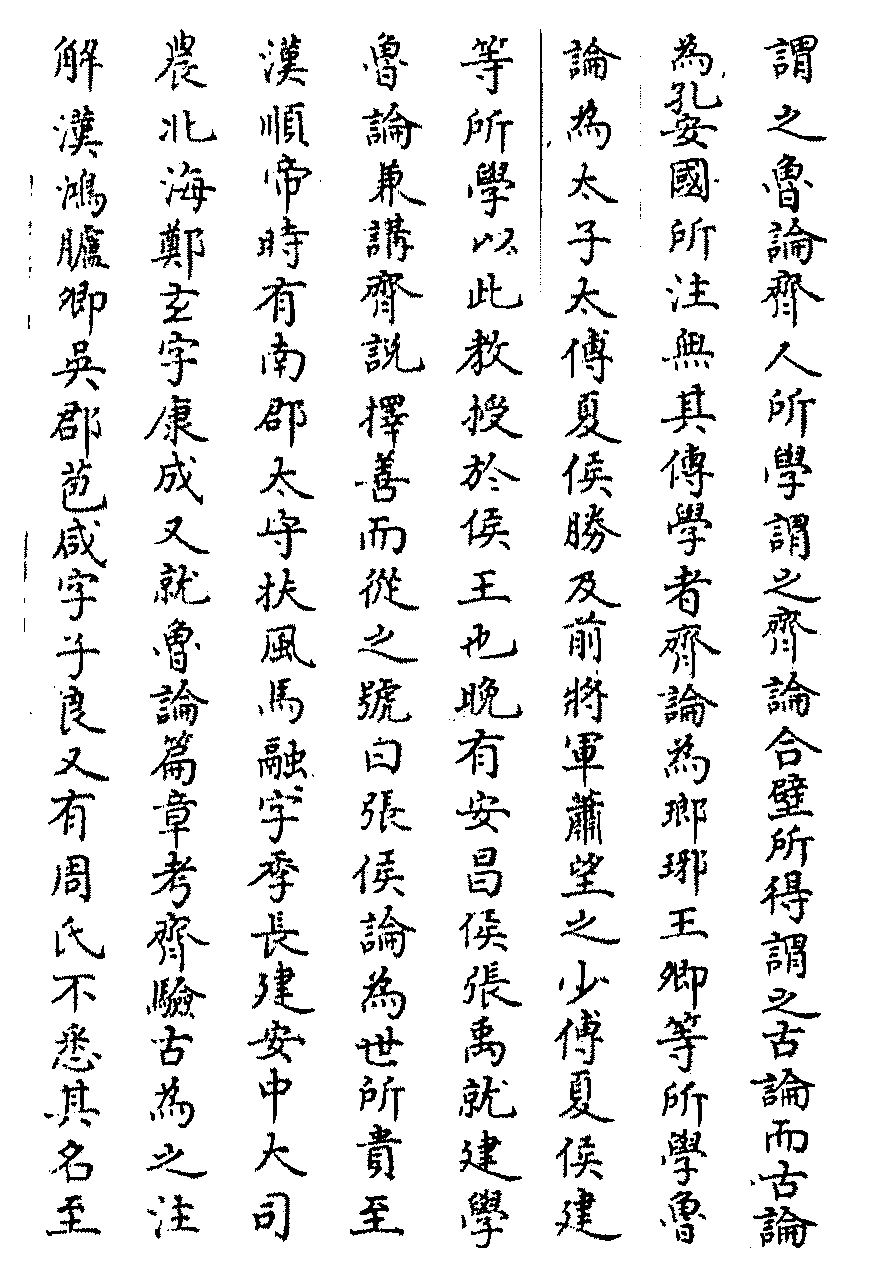 謂之魯論齊人所學謂之齊論合壁所得謂之古論而古論
為孔安國所注無其傳學者齊論為瑯琊王卿等所學魯
論為太子太傅夏侯勝及前將軍蕭望之少傅夏侯建
等所學以此教授於侯王也晚有安昌侯張禹就建學
魯論兼講齊說擇善而從之號曰張侯論為世所貴至
漢順帝時有南郡太守扶風馬融字季長建安中大司
農北海鄭玄字康成又就魯論篇章考齊驗古為之注
解漢鴻臚卿吳郡苞咸字子良又有周氏不悉其名至